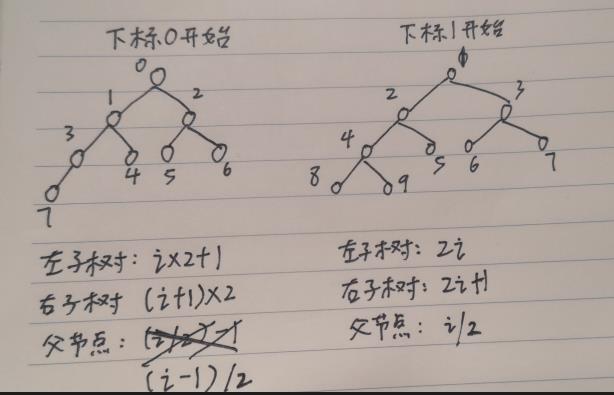 下标0开始
0
1
2
3
4
5
6
7
左子树: i×2+1
右子树 (i+1)×2
父节点:
(i-1)/2
下标1开始
2
3
4
5
6
7
8
9
左子树: 2i
右子树: 2i+1
父节点: i/2